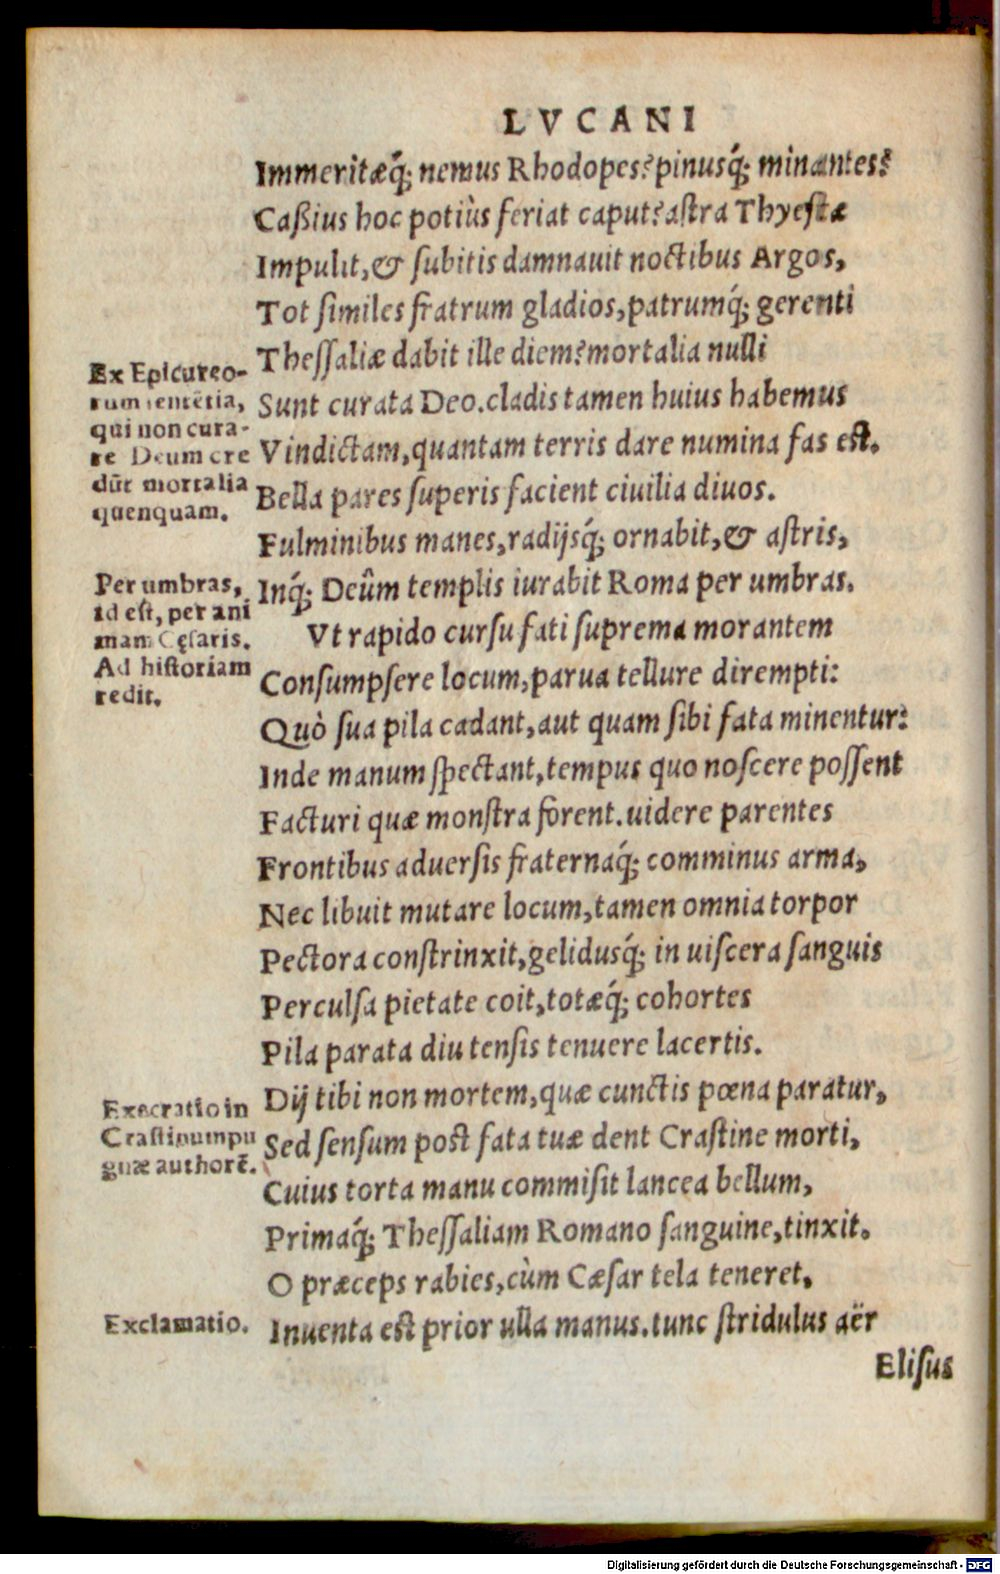 LVCANI
Immeritæq́; nemus Rhodopes? pinusq́; minantes?
Caßius hoc potiùs feriat caput? aſtra Thyeſtæ
Impulit, & ſubitis damnauit noctibus Argos,
Tot ſimiles fratrum gladios, patrumq́; gerenti
Theſſaliæ dabit ille diem? mortalia nulli
Sunt curata Deo. cladis tamen huius habemus
Vindictam, quantam terris dare numina fas est.
Bella pares ſuperis facient ciuilia diuos.
Fulminibus manes, radijsq́; ornabit, & aſtris,
Inq́; Deûm templis iurabit Roma per umbras.
Vt rapido curſu fati ſuprema morantem
Conſumpſere locum, parua tellure dirempti:
Quò ſua pila cadant, aut quam ſibi fata minentur?
Inde manum ſpectant, tempus quo noſcere poſſent
Facturi quæ monſtra forent. uidere parentes
Frontibus aduerſis fraternaq́; comminus arma,
Nec libuit mutare locum, tamen omnia torpor
Pectora conſtrinxit, gelidusq́; in uiſcera ſanguis
Perculſa pietate coit, totæq́; cohortes
Pila parata diu tenſis tenuere lacertis.
Dij tibi non mortem, quæ cunctis pœna paratur,
Sed ſenſum post fata tuæ dent Craſtine morti,
Cuius torta manu commiſit lancea bellum,
Primaq́; Theſſaliam Romano ſanguine, tinxit.
O præceps rabies, cùm Cæſar tela teneret,
Inuenta est prior ulla manus. tunc ſtridulus aër
Eliſus
Ex Epicureo-
rum ſentētia,
qui non cura-
re Deum cre
dūt mortalia
quenquam.
Per umbras,
id eſt, per ani
mam Cęſaris.
Ad hiſtoriam
redit.
Execratio in
Craſtinum pu
gnæ authorē.
Exclamatio.
Digitalisierung gefördert durch die Deutsche Forschungsgemeinschaft - DFG